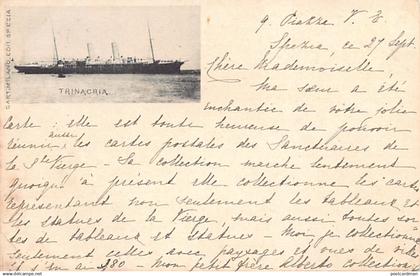 9 Piazza V. E
Spezia, ce 27 Sept.
Chère Mademoiselle,
Ma sœur a été
enchantée de votre jolie
carte; elle est toute heureuse de pouvoir
réunir aussi les cartes postales des Sanctuaires de
la Ste Vierge - La collection marche lentement
quoique à présent elle collectionne les cartes
représentant non seulement les tableaux et
les statues de la Vierge, mais aussi toutes sor-
tes de tableaux et statues - Moi je collectionne
seulement celles avec paysages et vues de
en ai 980 Mon petit frère Alberto collectionne
CARTI MILANO EDIT. SPEZIA
TRINACRIA
delcampe.net